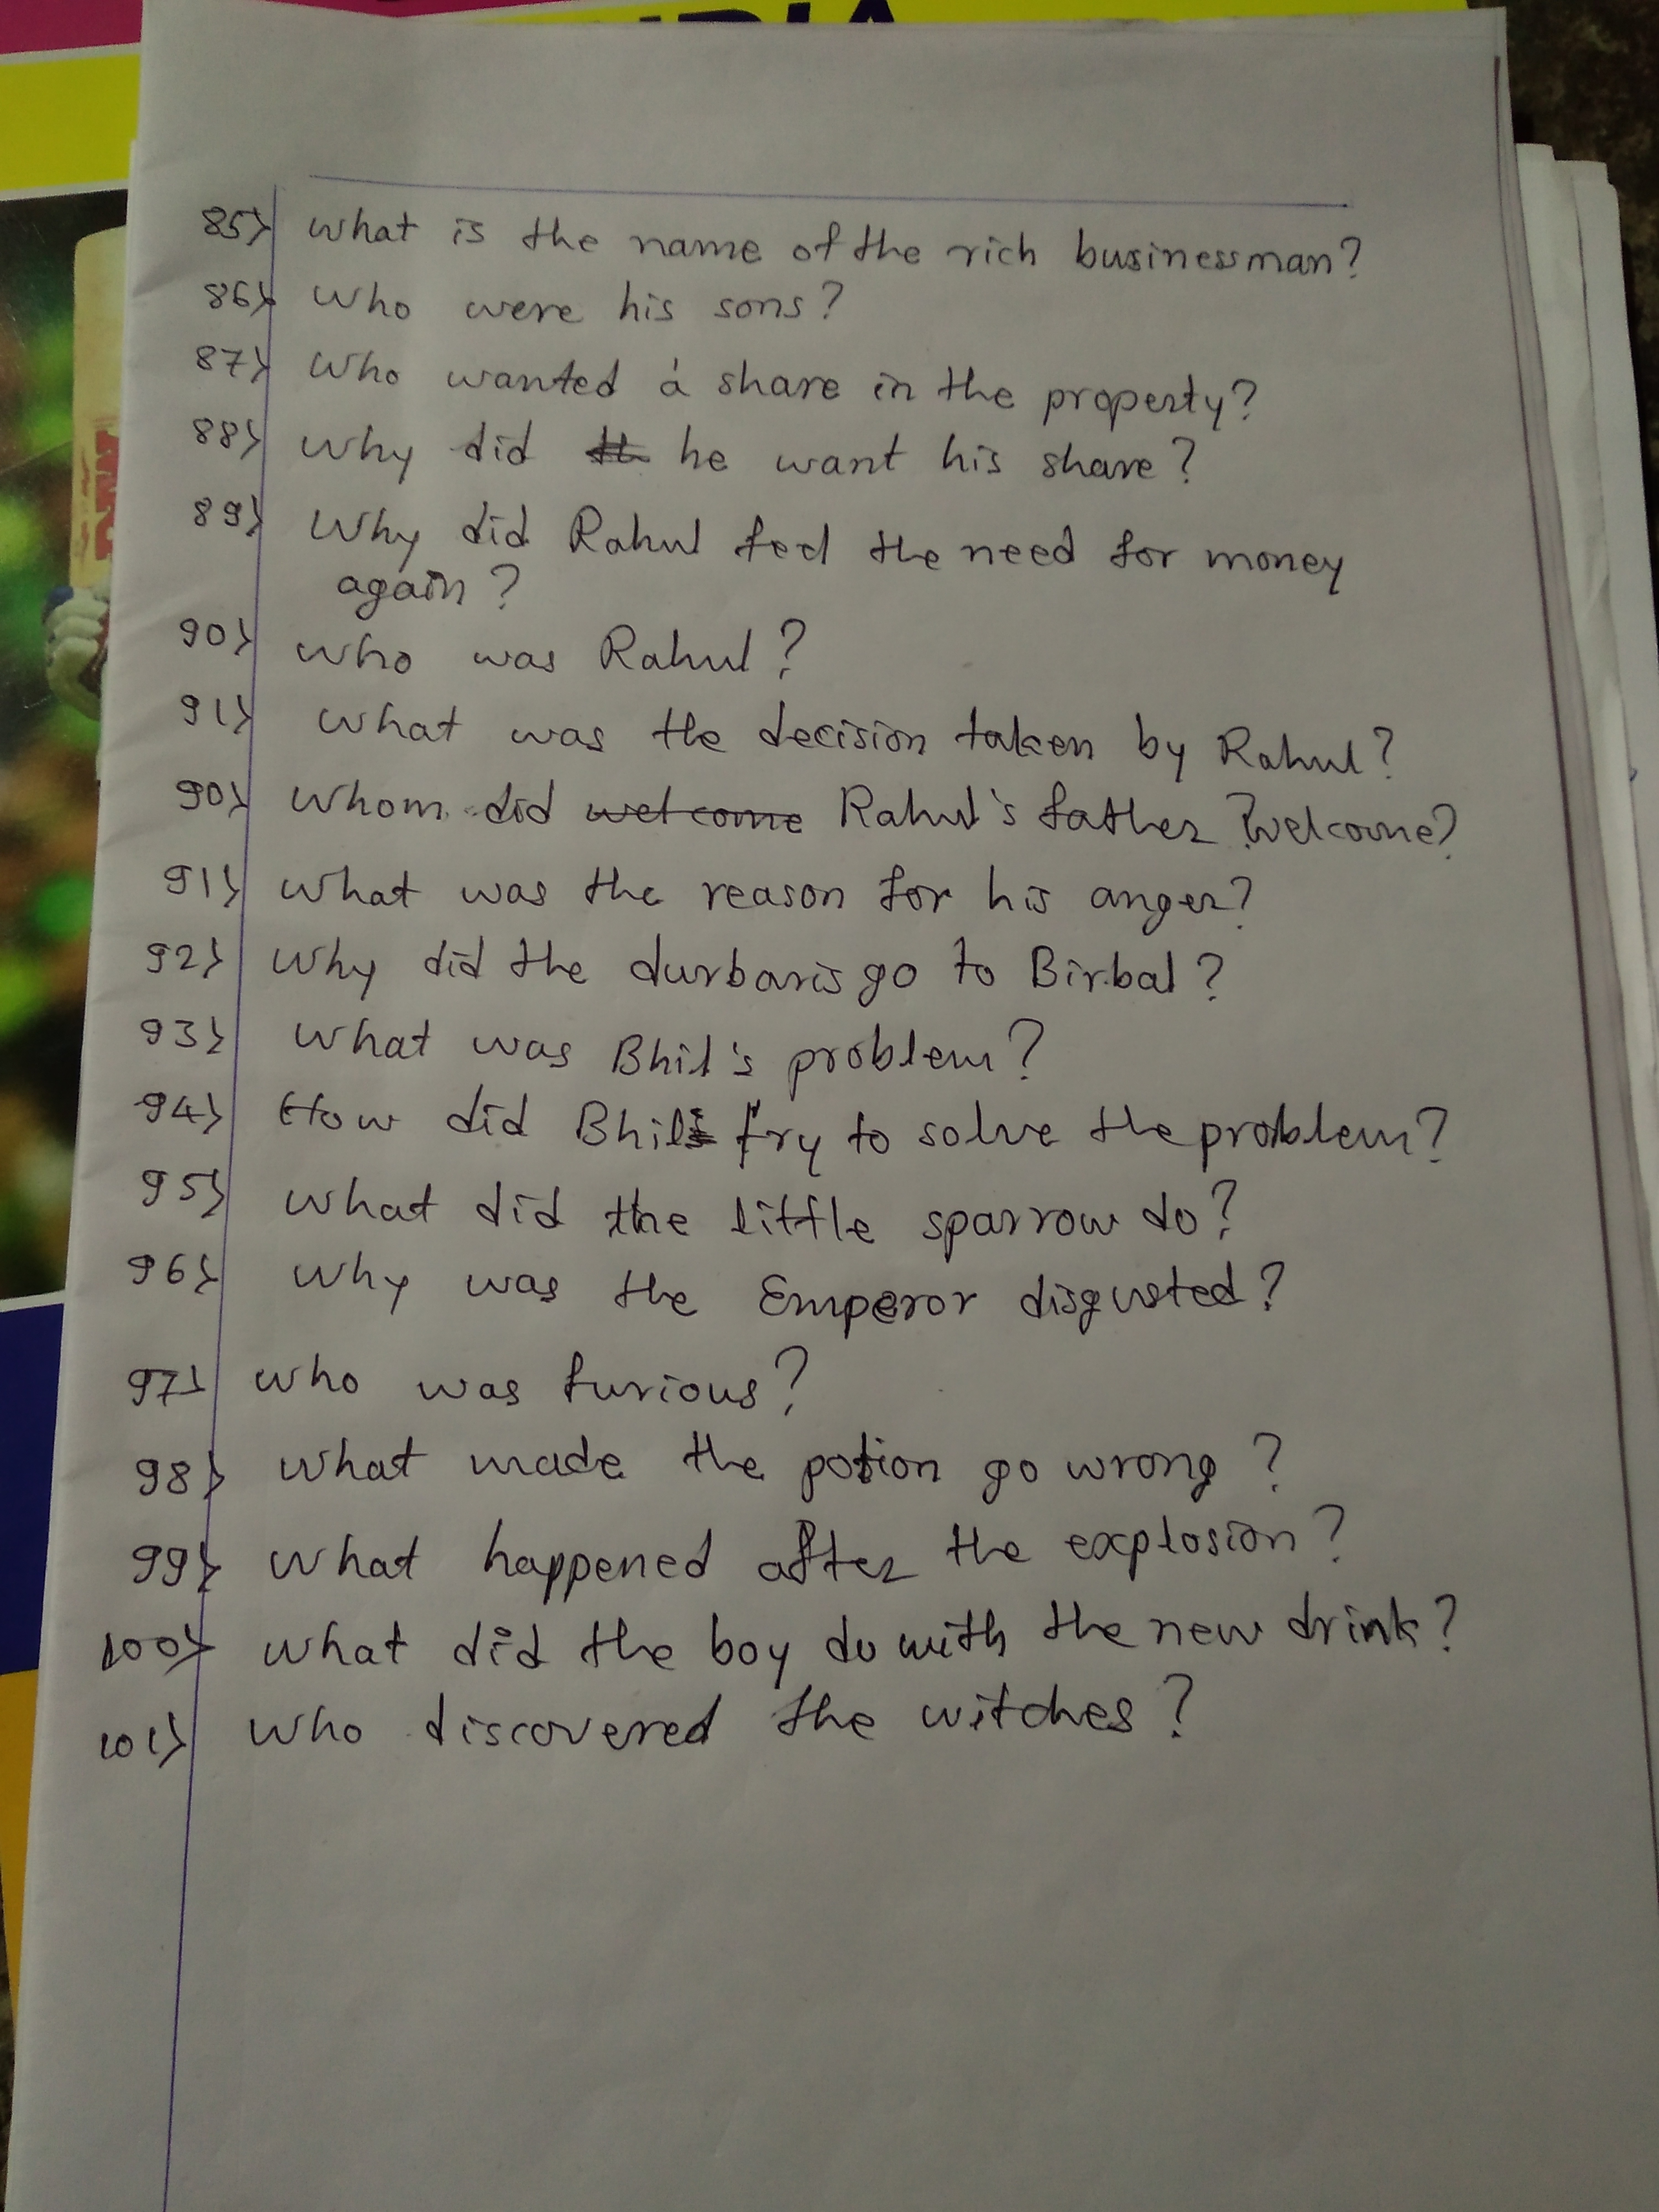 85> What is the name of the rich businessman?
86> Who were his sons?
87> Who wanted a share in the property?
88> Why did he want his share?
89> Why did Rahul feel the need for money
again?
90> Who was Rahul?
91> What was the decision taken by Rahul?
90> Whom did welcome Rahul's father ? welcome?
91> What was the reason for his anger?
92> Why did the durbaris go to Birbal?
93> What was Bhil's problem?
94> How did Bhil try to solve the problem?
95> What did the little sparrow do?
96> Why was the Emperor disgusted?
97> Who was furious?
98> What made the potion go wrong?
99> What happened after the explosion?
100> What did the boy do with the new drink?
101> Who discovered the witches?